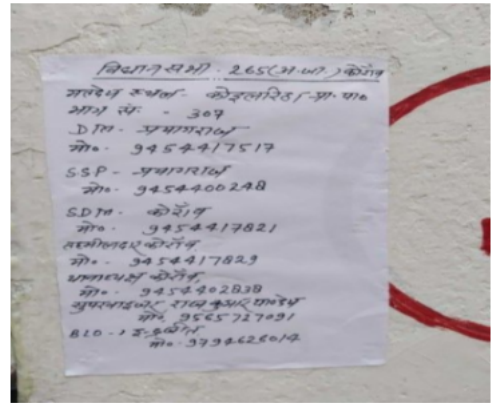 विधानसभा - 265 (अ.जा.) कोराँव
मतदेय स्थल - कोइलरिहा प्रा. पा०
भाग सं. - 307
DM - प्रयागराज
मो० - 9454417517
SSP - प्रयागराज
मो० - 9454400248
SDM - कोराँव
मो० - 9454417821
तहसीलदार कोराँव
मो० - 9454417829
थानाध्यक्ष कोराँव
मो० - 9454402838
सुपरवाइजर राज कुमार पाण्डेय
मो० 9565727091
BLO -
मो० - 9794626014